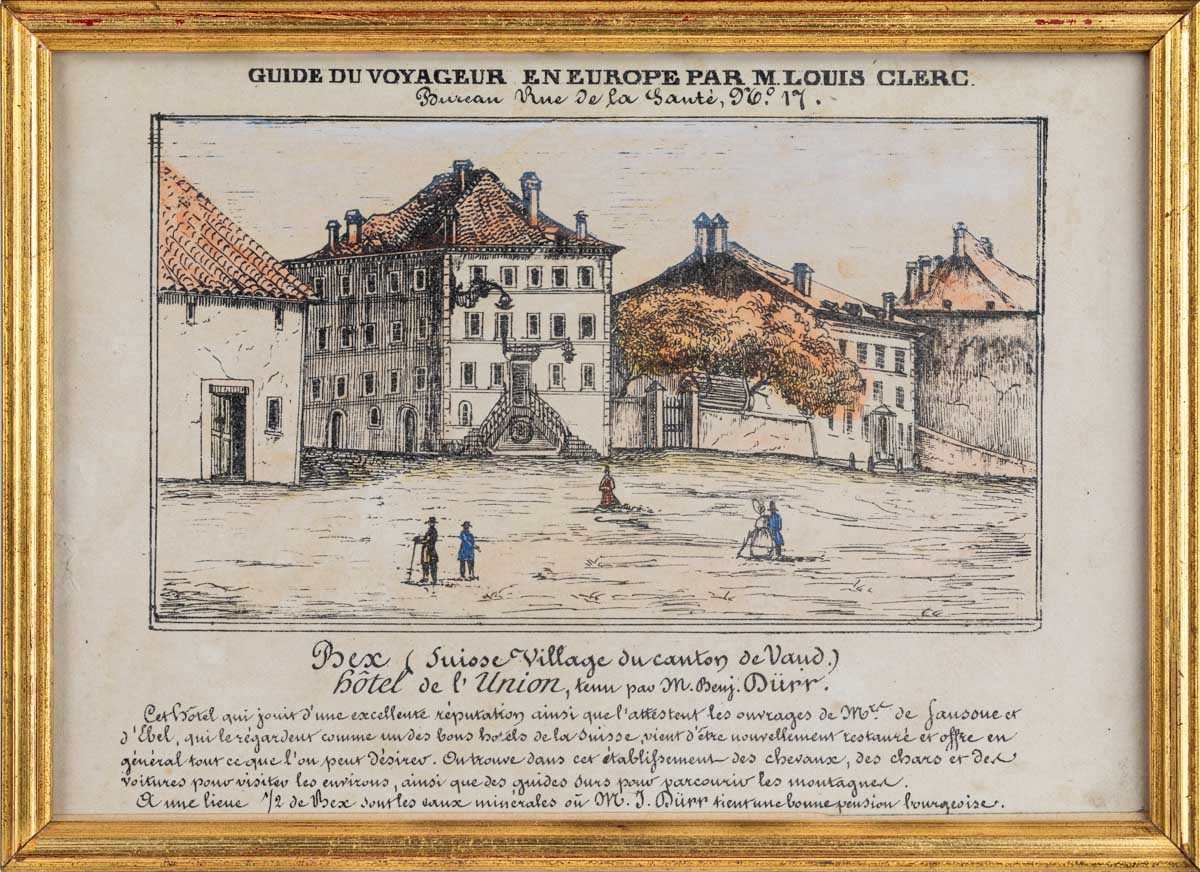 GUIDE DU VOYAGEUR EN EUROPE PAR M. LOUIS CLERC.
Bureau Rue de la Santé, No. 17.
Bex (Suisse Village du canton de Vaud.)
hôtel de l'Union, tenu par M. Benj. Dürr.
Cet hôtel qui jouit d'une excellente réputation ainsi que l'attestent les ouvrages de Mrs. de Saussue et
d'Ebel, qui le régardent comme un des bons hotels de la Suisse, vient d'être nouvellement restauré et offre en
général tout ce que l'on peut désirer. On trouve dans cet établissement des chevaux, des chars et des
voitures pour visiter les environs, ainsi que des guides surs pour parcourir les montagnes.
A une lieue 1/2 de Bex sont les eaux minérales où M. J. Dürr tient une bonne pension bourgeoise.